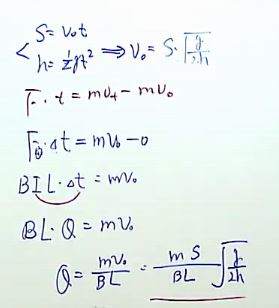 S = v₀t
h = ½gt² ⟹ v₀ = S·√(g/2h)
F·t = mvₜ - mv₀
F安·Δt = mv₀ - 0
BIL·Δt = mv₀
BL·Q = mv₀
Q = mv₀/BL = mS/BL √(g/2h)